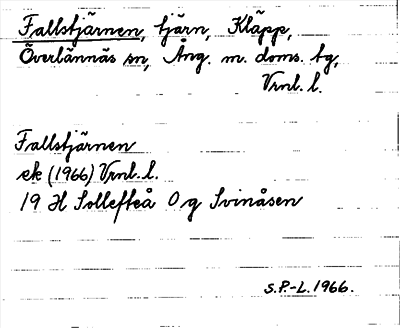 Fallstjärnen, tjärn, Kläpp,
Överlännäs sn, Ång. m. doms. tg,
Vrnl. l.
Fallstjärnen
ek (1966) Vrnl. l.
19 H Sollefteå 0 g Svinåsen
S.P.-L. 1966.